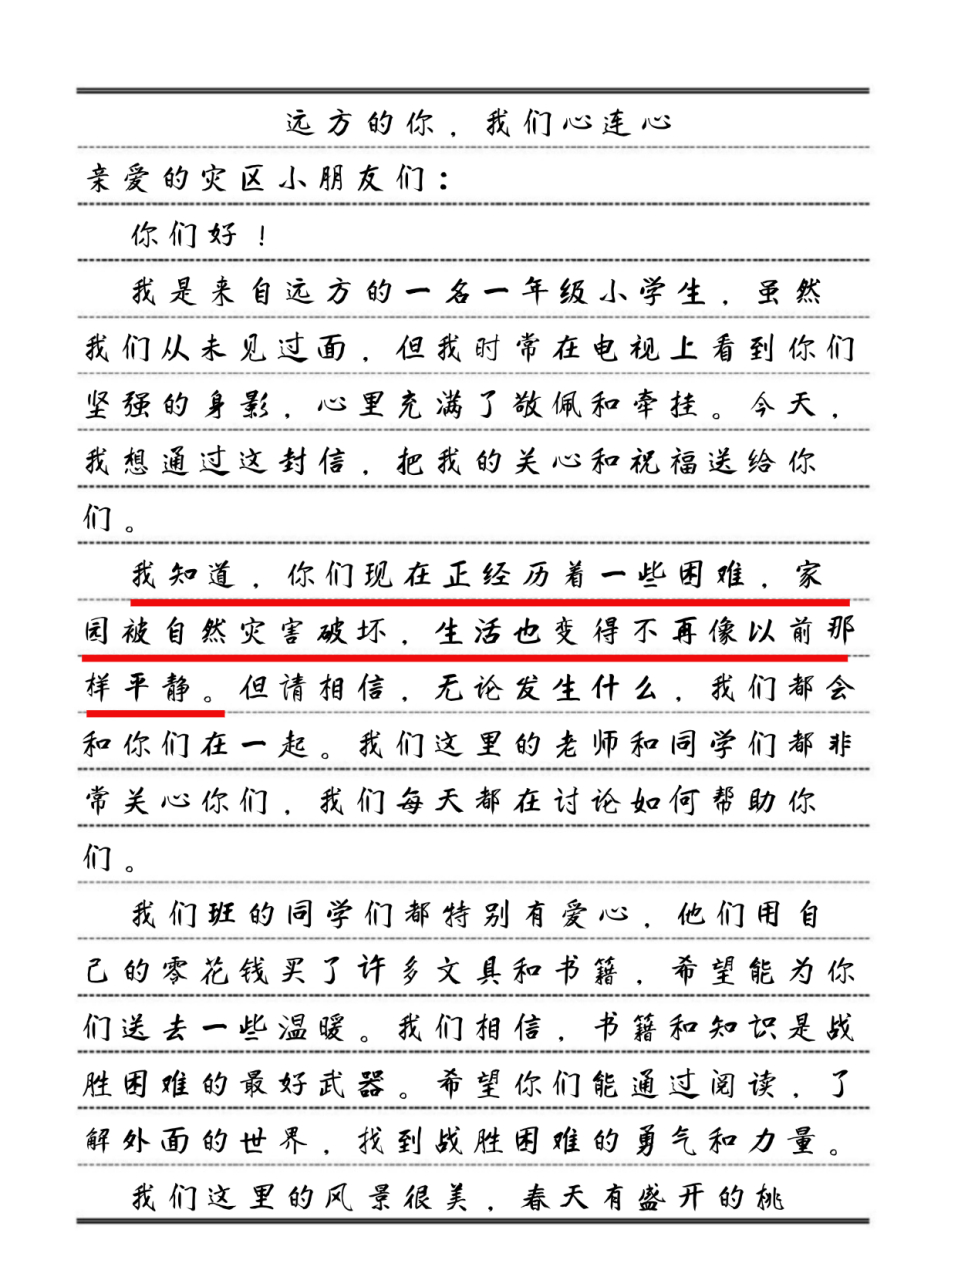 远方的你，我们心连心
亲爱的灾区小朋友们：
你们好！
我是来自远方的一名一年级小学生，虽然
我们从未见过面，但我时常在电视上看到你们
坚强的身影，心里充满了敬佩和牵挂。今天，
我想通过这封信，把我的关心和祝福送给你
们。
我知道，你们现在正经历着一些困难，家
园被自然灾害破坏，生活也变得不再像以前那
样平静。但请相信，无论发生什么，我们都会
和你们在一起。我们这里的老师和同学们都非
常关心你们，我们每天都在讨论如何帮助你
们。
我们班的同学们都特别有爱心，他们用自
己的零花钱买了许多文具和书籍，希望能为你
们送去一些温暖。我们相信，书籍和知识是战
胜困难的最好武器。希望你们能通过阅读，了
解外面的世界，找到战胜困难的勇气和力量。
我们这里的风景很美，春天有盛开的桃